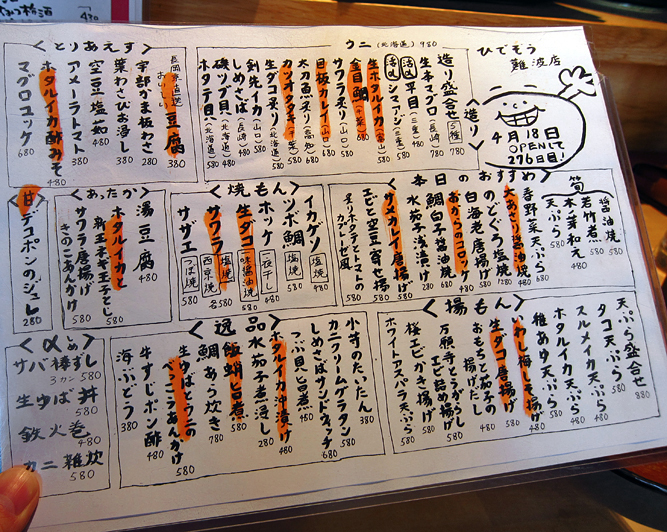 ひでぞう
難波店
4月18日
OPENして
276日目!
<造り>
造り盛合せ 5種 780
生本マグロ(長崎) 780
活〆 平目(三重) 480
活〆 シマアジ(三重) 580
生ホタルイカ(富山) 480
金目鯛(千葉) 680
目板カレイ(山口) 580
サワラ炙り(山口) 580
太刀魚炙り(高知) 680
カツオタタキ(千葉) 680
生ダコ(北海道) 580
剣先イカ(山口) 580
しめさば(長崎) 480
磯ツブ貝(北海道) 480
ホタテ貝(北海道) 580
ウニ(北海道) 980
<とりあえず>
長岡京直送
おいしい 豆腐 380
宇部かま板わさ 280
葉わさびお浸し 380
空豆塩茹 480
アメーラトマト 380
ホタルイカ酢みそ 480
マグロユッケ 680
筍
醤油焼 580
若竹煮 580
木ノ芽和え 480
天ぷら 580
<本日のおすすめ>
春野菜天ぷら 580
大あさり醤油焼 480
のどぐろ塩焼
白海老唐揚げ 580
おからのコロッケ 480
鯛白子醤油焼 680
水茄子浅漬け 480
サメカレイ唐揚げ 580
エビと空豆寄せ揚げ
生ホタテとトマトのカプレーゼ風
<焼もん>
イカゲソ 塩焼 480
ツボ鯛 塩焼 580
ホッケ 一夜干し 680
生ダコ 味噌醤油焼
サワラ 塩焼 西京焼 各580
サザエ つぼ焼 580
<あったか>
湯豆腐 480
ホタルイカと
新玉ネギ玉子とじ 580
サワラ唐揚げ
きのこあんかけ 580
甘
デコポンのジュレ 280
<揚もん>
天ぷら盛合せ 880
タコ天ぷら 580
スルメイカ天ぷら 480
ホタルイカ天ぷら 580
稚あゆ天ぷら 580
いわし梅しそ揚げ 480
生ダコ唐揚げ 580
おもちと茄子の
揚げだし 480
万願寺とうがらし
エビ詰め揚げ 580
桜エビかき揚げ 580
ホワイトアスパラ天ぷら 580
<逸品>
小芋のたいたん 380
カニクリームグラタン 580
しめさばサンドウィッチ 680
つぶ貝旨煮 480
ホタルイカ沖漬け 480
水茄子煮浸し 280
飯蛸旨煮 580
鯛あら炊き 780
生ゆばとウニの
べっこうあんかけ 580
牛すじポン酢 480
海ぶどう 380
<〆>
サバ棒ずし
3カン 580
生ゆば丼 580
鉄火巻 480
カニ雑炊 580